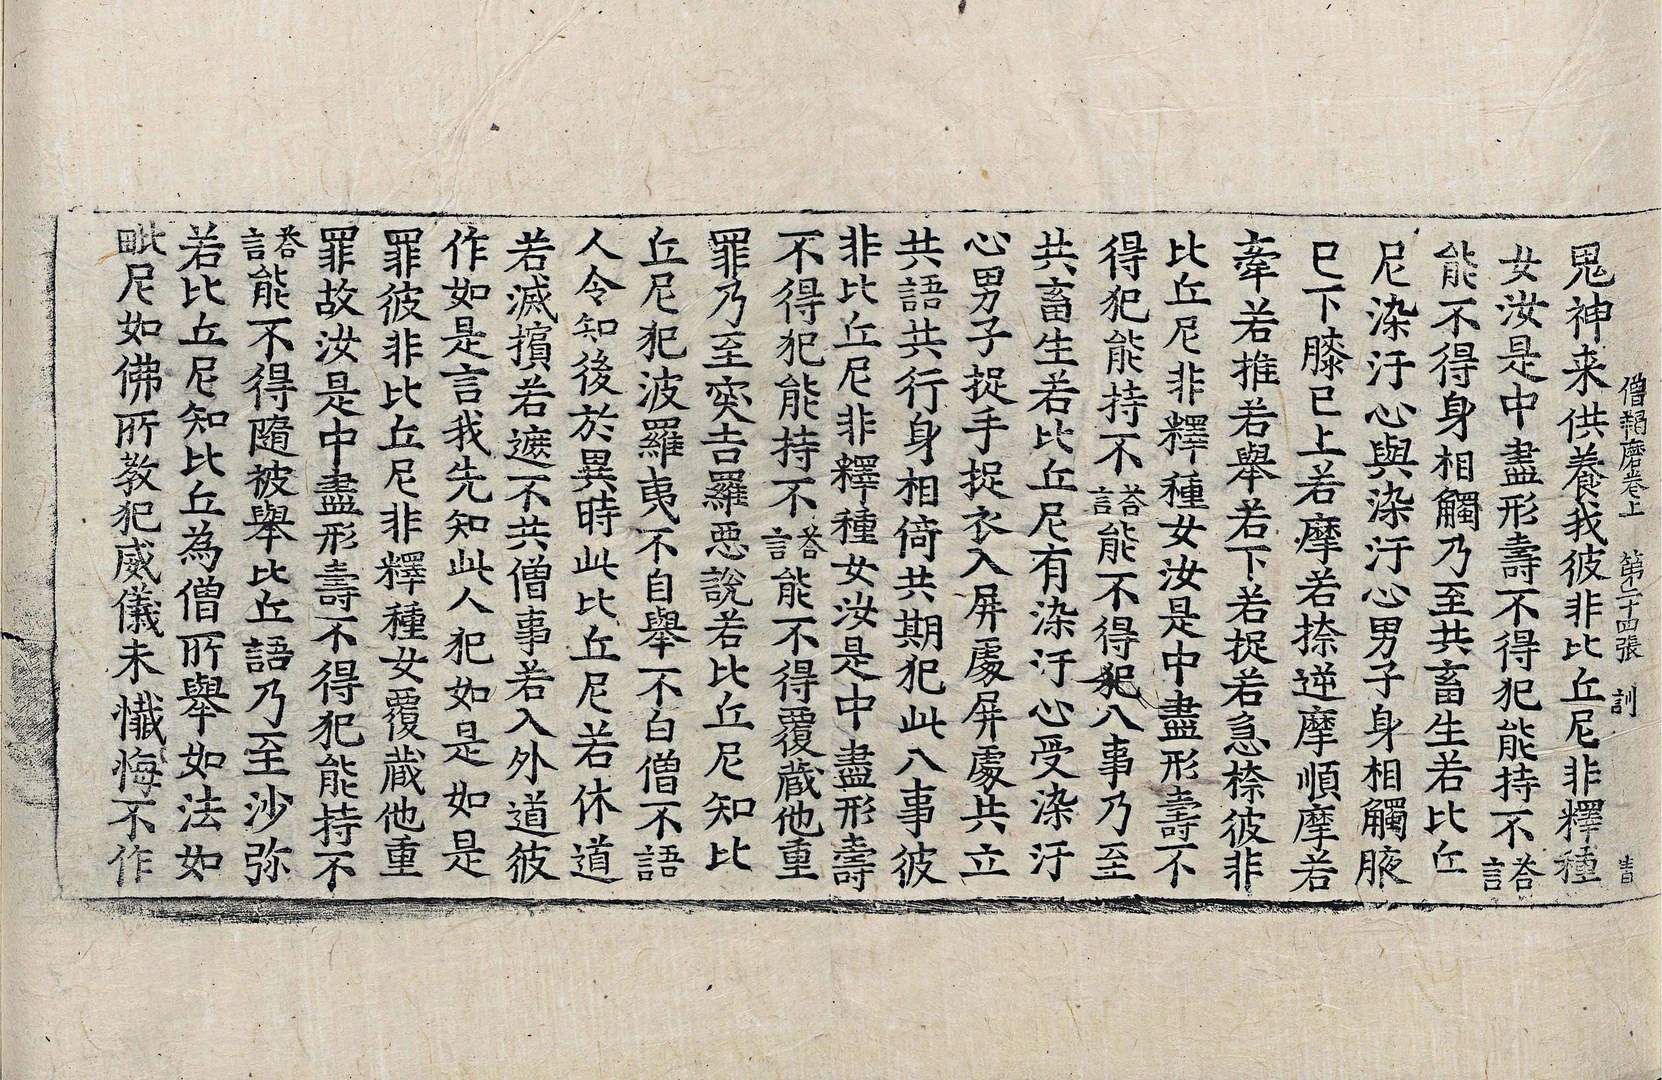 僧羯磨卷上 第二十四張 訓
鬼神来供養我彼非比丘尼非釋種
女汝是中盡形壽不得犯能持不答言
能不得身相觸乃至共畜生若比丘
尼染汙心與染汙心男子身相觸腋
已下膝已上若摩若捺逆摩順摩若
牽若推若舉若下若捉若急捺彼非
比丘尼非釋種女汝是中盡形壽不
得犯能持不答言能不得犯八事乃至
共畜生若比丘尼有染汙心受染汙
心男子捉手捉衣入屏處屏處共立
共語共行身相倚共期犯此八事彼
非比丘尼非釋種女汝是中盡形壽
不得犯能持不答言能不得覆藏他重
罪乃至突吉羅惡說若比丘尼知比
丘尼犯波羅夷不自舉不白僧不語
人令知後於異時此比丘尼若休道
若滅擯若遮不共僧事若入外道彼
作如是言我先知此人犯如是如是
罪彼非比丘尼非釋種女覆藏他重
罪故汝是中盡形壽不得犯能持不
答言能不得隨被舉比丘語乃至沙弥
若比丘尼知比丘為僧所舉如法如
毗尼如佛所教犯威儀未懺悔不作